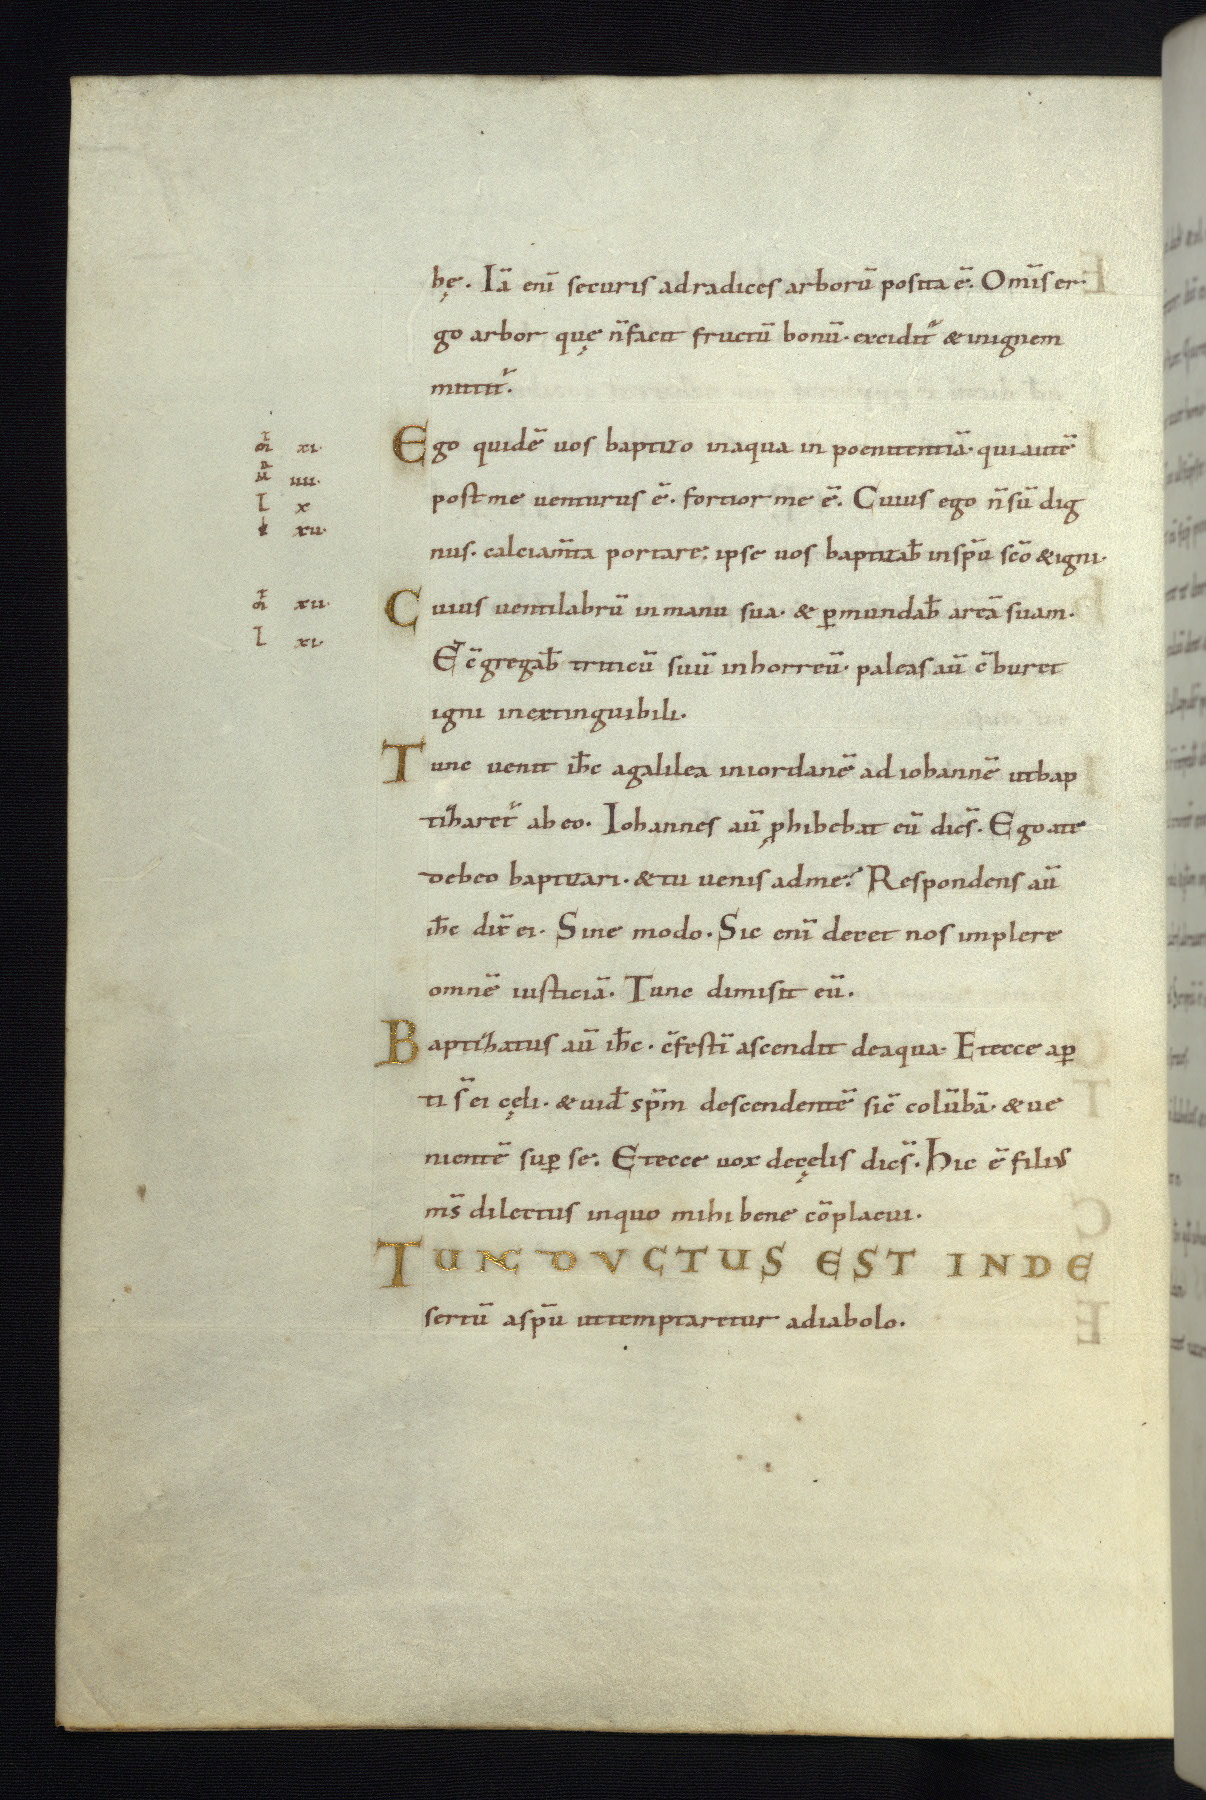 bę. Iā enī securis ad radices arborū posita ē. Omīs er
go arbor quę n̄ facit fructū bonū. excidit̄ & in ignem
mittit̄.
Ego quidē uos baptizo in aqua in poenitentiā. qui autē
post me uenturus ē. fortior me ē. Cuius ego n̄ sū dig
nus. calciam̄ta portare; ipse uos baptizab̄ in sp̄u sc̄o & igni.
Cuius uentilabrū in manu sua. & ꝑmundab̄ areā suam.
Et c̄gregab̄ triticū suū in horreū. paleas aū c̄buret
igni inextinguibili.
Tunc uenit ih̄c a galilea in iordanē ad iohannē ut bap
tizaret̄ ab eo. Iohannes aū ꝓhibebat eū dic̄s. Ego a te
debeo baptizari. & tu uenis ad me? Respondens aū
ih̄c dix̄ ei. Sine modo. Sic enī decet nos implere
omnē iusticiā. Tunc dimisit eū.
Baptizatus aū ih̄c. c̄festī ascendit de aqua. Et ecce aꝑ
ti s̄ ei cęli. & uid̄ sp̄m descendentē sic̄ colūbā. & ue
nientē suꝑ se. Et ecce uox de cęlis dic̄s. Hic ē filius
m̄s dilectus in quo mihi bene cōplacui.
TUNC DVCTUS EST IN DE
sertū a sp̄u ut temptaretur a diabolo.
xı.
ıııı.
l x
xıı.
l xı.